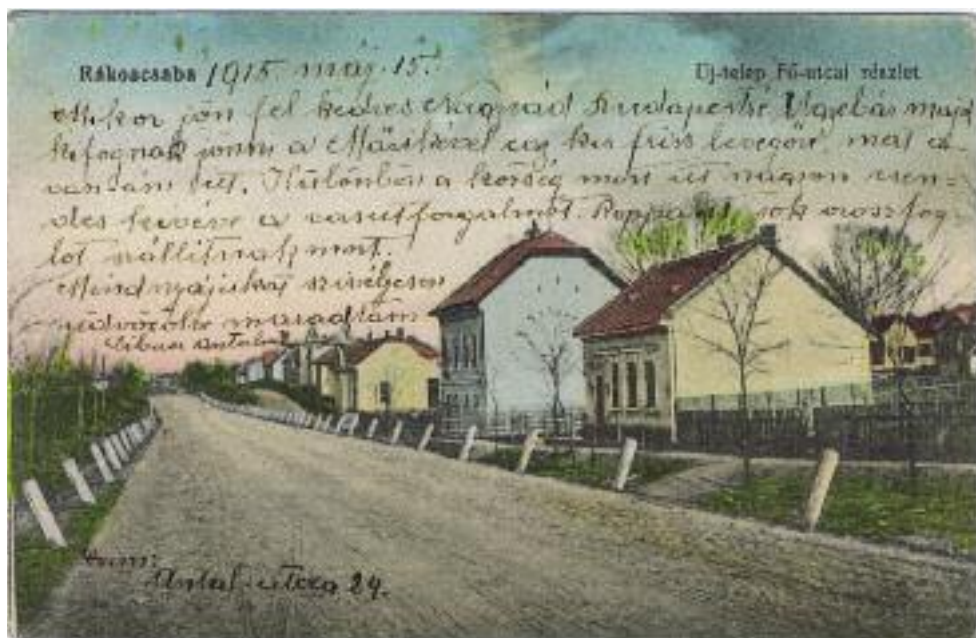 Rákoscsaba 1915. máj. 15.
Uj-telep Fő-utcai részlet.
Mikor jön fel kedves Nagysád Budapestre
ki fognak jönni a kis friss levegőre, mert
van ám itt. Különben a község most itt nagyon csen-
des kivéve a vasutforgalmat. Roppant sok orosz fog-
lyot szállitnak most.
Mindnyájukat szivélyesen
üdvözölve maradtam
Antal
Antal-utcza 29.